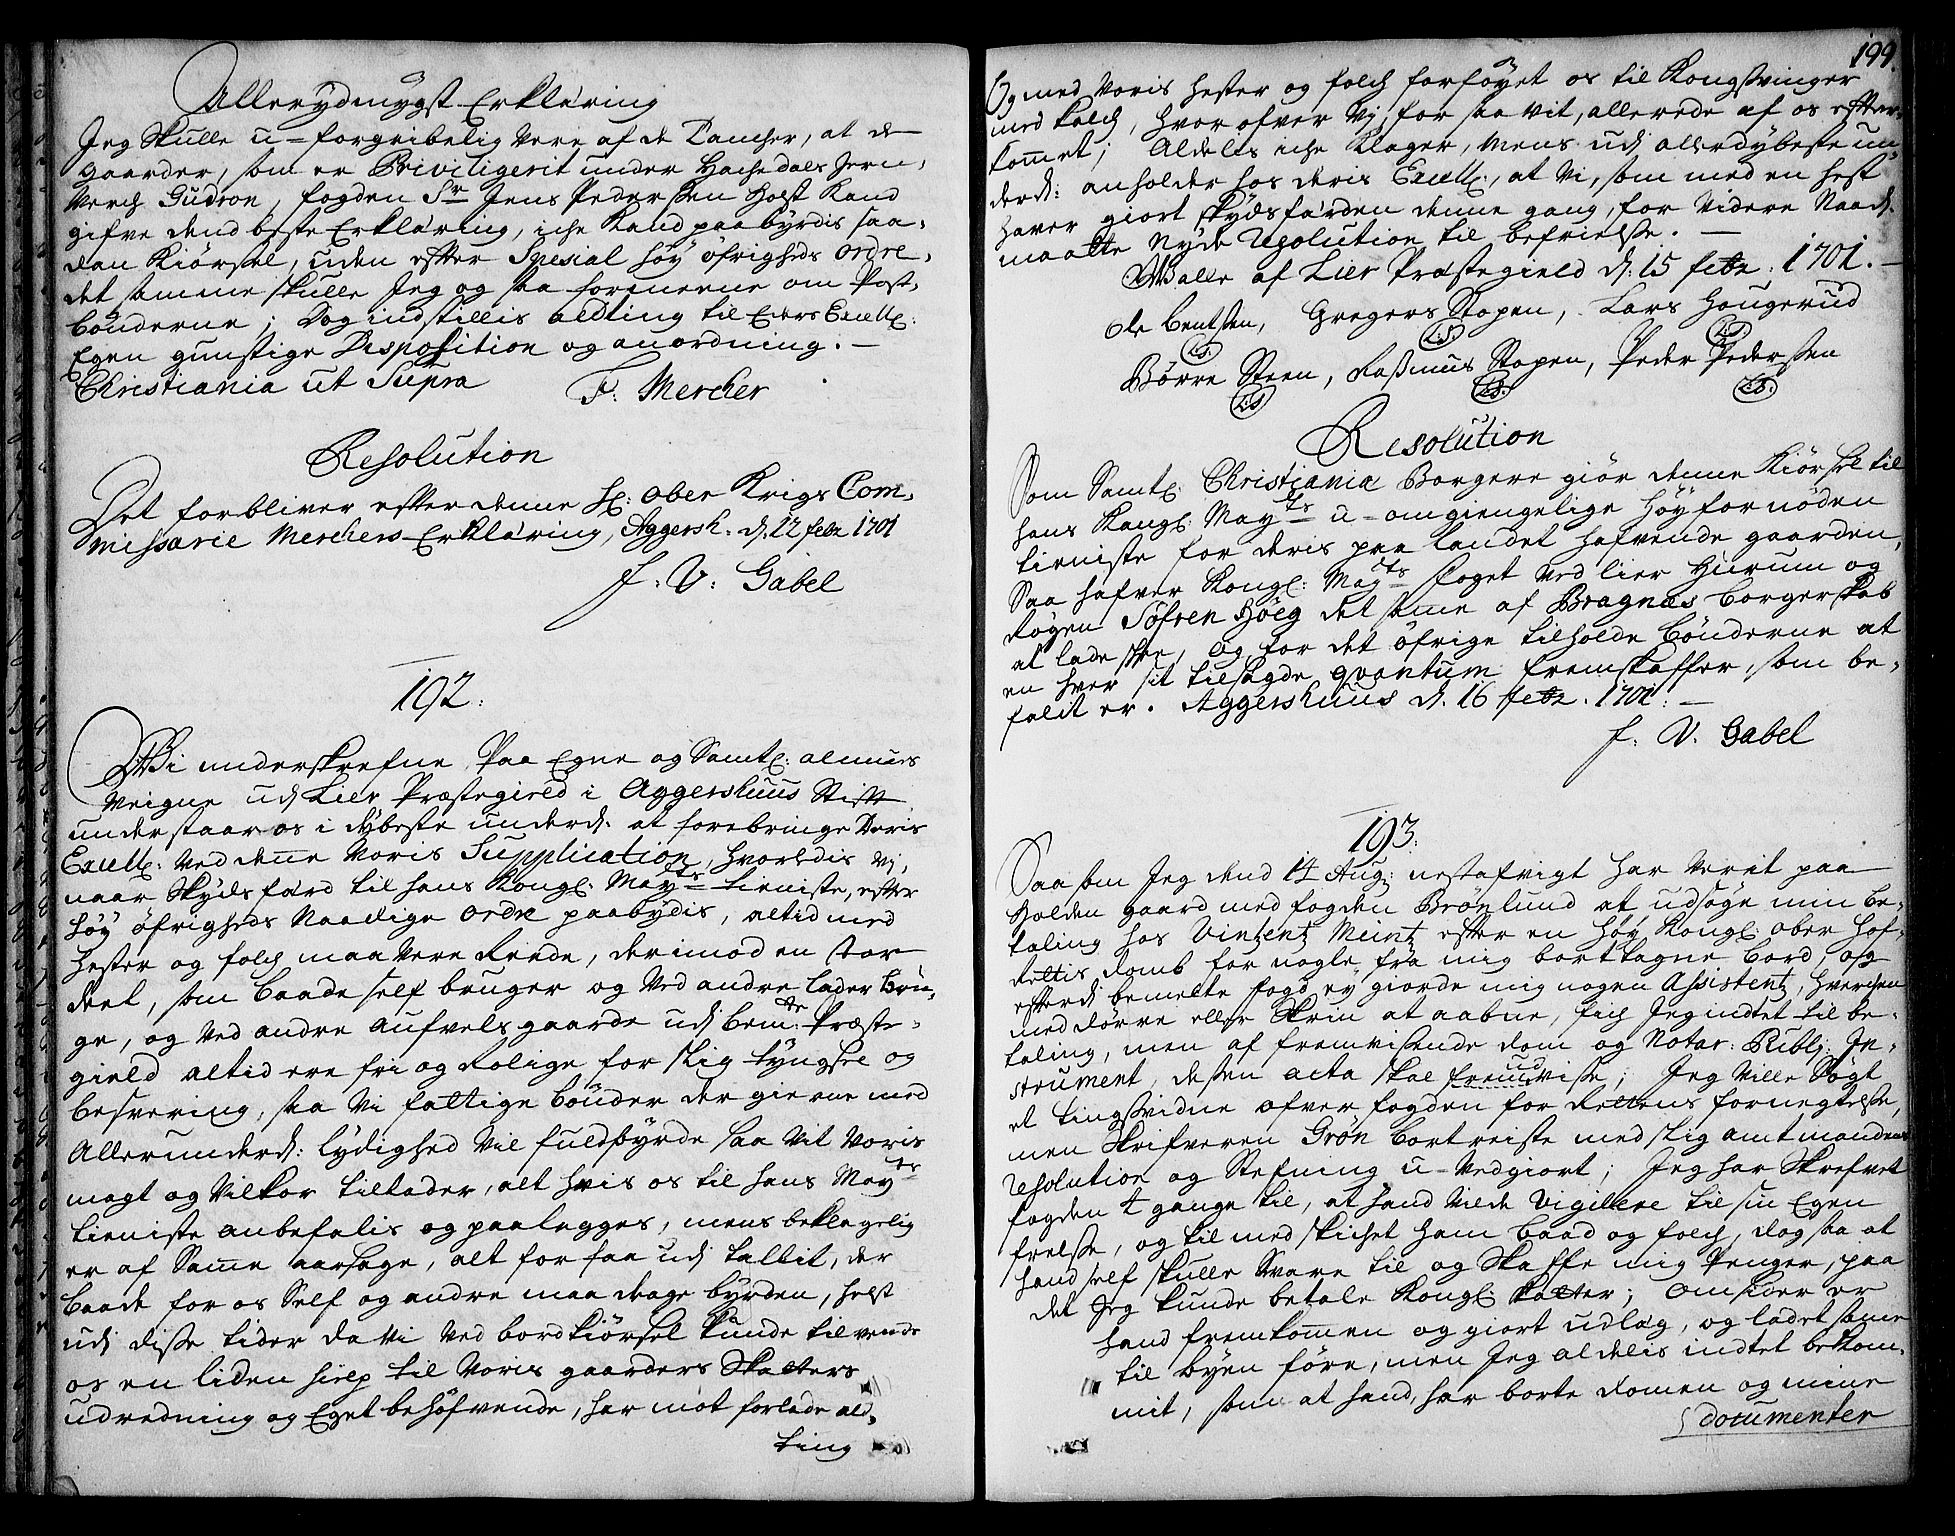 Allerydmygst Erklæring
Jeg Skulle u-forgribelig Vere af de Tancher, at de
gaarder, som er Priviligerit under Hachedals Jern,
Verch Gudron, fogden Sr Jens Pederssen Holst Kand
gifve dend beste Erklæring, iche Kand paabyrdis saa,
dan Kiørssel, uden efter Spesial höy öfrigheds ordre,
det samme skulle Jeg og saa formeene om Post,
bönderne; Dog indstillis alting til Eders Excell:
Egen gunstige Disposition og anordning.
Christiania ut Supra F: Mercher
Resolution
Det forbliver efter denne H: Ober Krigs Com,
missarie Merchers Erklæring, Aggersh. d. 22 febr 1701
F. V. Gabel
192.
Wi underskrefne Paa Egne og Samtl: almues
Veigne udj Lier Præstegield i Aggershuus Stift
understaar os i dybeste underd: at forebringe Deris
Excell: Ved denne Voris Supplication, hvorledis Vj,
naar Skydsfærd til hans Kongl: Mayts tieniste, efter
höy öfrigheds Naadige ordre paabydis, altid med
hester og folch maa Vere Rede, derimod en stor
deel, som baade self bruger og Ved andre lader bru,
ge, og Ved andre aufvels gaarde udj bemte Præste,
gield altid ere fri og Rolige for slig tyngsel og
besvering, saa Vi fattige bönder der gierne med
Allerunderd: lydighed Vil fuldbyrde saa Vit Voris
magt og Vilkor tillader, alt hvis os til hans Mayts
tieniste anbefalis og paalegges, mens beklagelig
er af Samme aarsage, alt for faa udj tallit, der
baade for os Self og andre maa drage byrden, helst
udj disse tider da Vi Ved bordkiørsel kunde tilvende
os en liden hielp til Voris gaarders Skatters
udredning og Eget behöfvende, har mot forlade all,
ting
199.
Og med Voris hester og folch forföyet os til Kongsvinger
med Kalch, hvor ofver Vj, for saa vit, allerede af os efter,
kommet; Aldelis iche Klager, Mens udj allerdybeste un,
derd: anholder hos deris Excell:, at Vi, som med en hest
haver giort skydsfærden denne gang, for Videre Naad:
maatte Nyde Resolution til befrielse.
Walle af Lier Præstegield d: 15 febr: 1701.
Ole bentsen, Gregers Stopen, Lars Haugerud
Börre Steen, Rasmus Stopen, Peder Pederssen
Resolution
Som Samtl: Christiania Borgere giør denne Kiørsel til
hans Kongl: Mayts u-omgiengelige höyfornöden
tieniste for deris paa landet hafvende gaarden,
Saa hafver Kongl: Mayts foget Ved lier Hurum og
Röyen Söfren Höeg det same af Bragnæs borgerskab
at lade skee, og for det öfrige tilholde bönderne at
en hver sit tilsagde qvantum fremskaffer, som be,
falit er. Aggershuus d. 16 febr. 1701.
F. V. Gabel
193.
Saasom Jeg dend 14 Aug: nestafvigt har Verit paa
Holden gaard med fogden Brönlund at udsøge min be,
taling hos Vintzentz Meintz efter en höy Kongl: ober Hof,
Rettis domb for nogle fra mig borttagne bord, og
efterdj bemelte fogd ey giorde mig nogen Assistentz, hverchen
med dörre eller Skrin at aabne, fich Jeg indtet til be,
taling, men af fremvisende dom og Notar: Publ: In,
strument, dessen acta skal fremvise; Jeg Ville Søgt
et tingsvidne ofver fogden for Rettens fornegtelse,
men Skrifveren Grön bortreiste med slig amtmandens
resolution og Stefning u-Vedgiort; Jeg har Skrefvet
fogden 4 gange til, at hand vilde vigilere til sin Egen
frelse, og til med skichet ham baad og folch, dog saa at
hand self skulle Svare til og Skaffe mig Penger, paa
det Jeg kunde betale Kongl: Skatter; omsider er
hand fremkommen og giort udlæg, og ladet samme
til byen före, men Jeg aldelis indtet bekom,
mit, som at hand har borte domen og mine
documenter